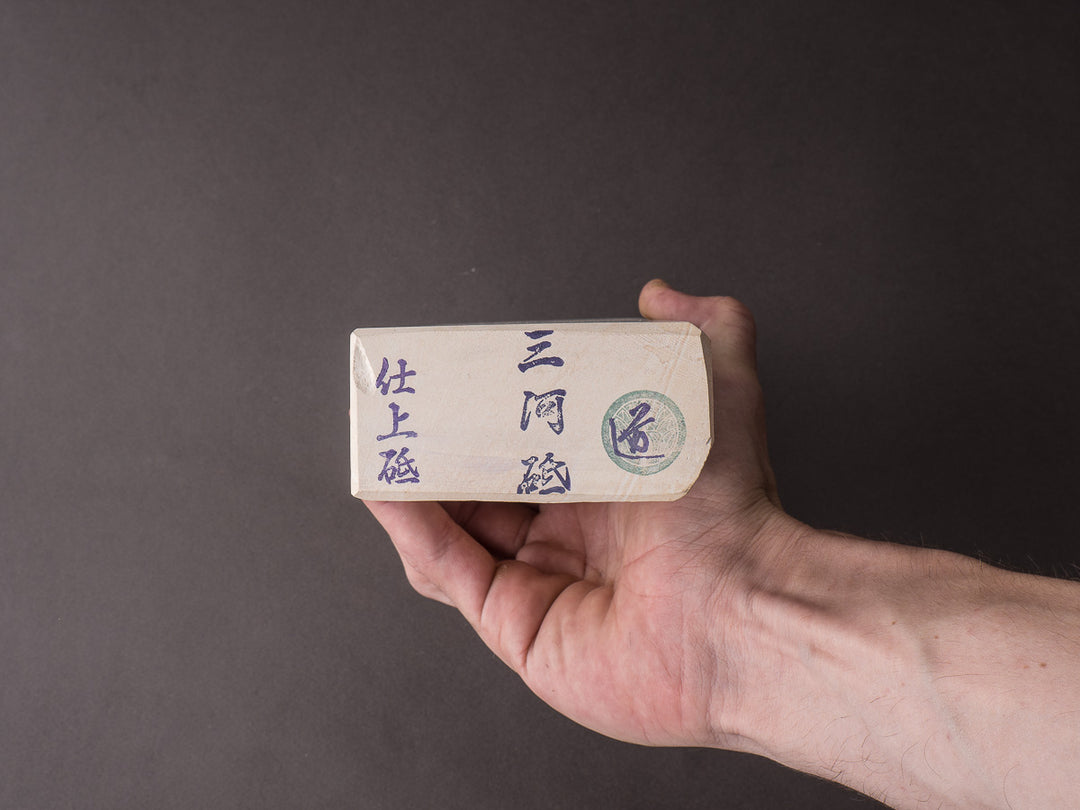 道
三河砥
仕上砥